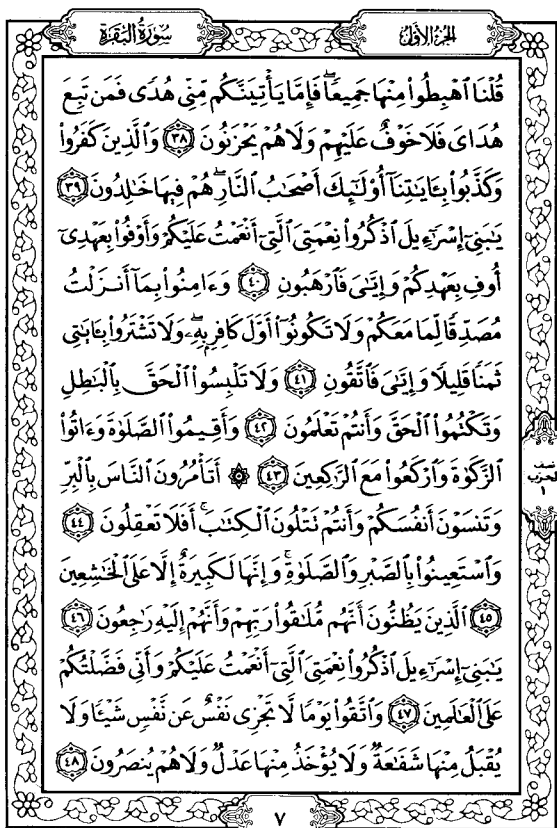 سُورَةُ البَقَرَةِ
الجزءُ الأوَّلُ
قُلۡنَا ٱهۡبِطُواْ مِنۡهَا جَمِيعٗاۖ فَإِمَّا يَأۡتِيَنَّكُم مِّنِّي هُدٗى فَمَن تَبِعَ
هُدَايَ فَلَا خَوۡفٌ عَلَيۡهِمۡ وَلَا هُمۡ يَحۡزَنُونَ ٣٨ وَٱلَّذِينَ كَفَرُواْ
وَكَذَّبُواْ بِـَٔايَٰتِنَآ أُوْلَٰٓئِكَ أَصۡحَٰبُ ٱلنَّارِۖ هُمۡ فِيهَا خَٰلِدُونَ ٣٩
يَٰبَنِيٓ إِسۡرَٰٓءِيلَ ٱذۡكُرُواْ نِعۡمَتِيَ ٱلَّتِيٓ أَنۡعَمۡتُ عَلَيۡكُمۡ وَأَوۡفُواْ بِعَهۡدِيٓ
أُوفِ بِعَهۡدِكُمۡ وَإِيَّٰيَ فَٱرۡهَبُونِ ٤٠ وَءَامِنُواْ بِمَآ أَنزَلۡتُ
مُصَدِّقٗا لِّمَا مَعَكُمۡ وَلَا تَكُونُوٓاْ أَوَّلَ كَافِرِۭ بِهِۦۖ وَلَا تَشۡتَرُواْ بِـَٔايَٰتِي
ثَمَنٗا قَلِيلٗا وَإِيَّٰيَ فَٱتَّقُونِ ٤١ وَلَا تَلۡبِسُواْ ٱلۡحَقَّ بِٱلۡبَٰطِلِ
وَتَكۡتُمُواْ ٱلۡحَقَّ وَأَنتُمۡ تَعۡلَمُونَ ٤٢ وَأَقِيمُواْ ٱلصَّلَوٰةَ وَءَاتُواْ
ٱلزَّكَوٰةَ وَٱرۡكَعُواْ مَعَ ٱلرَّٰكِعِينَ ٤٣ ۞ أَتَأۡمُرُونَ ٱلنَّاسَ بِٱلۡبِرِّ
وَتَنسَوۡنَ أَنفُسَكُمۡ وَأَنتُمۡ تَتۡلُونَ ٱلۡكِتَٰبَۚ أَفَلَا تَعۡقِلُونَ ٤٤
وَٱسۡتَعِينُواْ بِٱلصَّبۡرِ وَٱلصَّلَوٰةِۚ وَإِنَّهَا لَكَبِيرَةٌ إِلَّا عَلَى ٱلۡخَٰشِعِينَ
٤٥ ٱلَّذِينَ يَظُنُّونَ أَنَّهُم مُّلَٰقُواْ رَبِّهِمۡ وَأَنَّهُمۡ إِلَيۡهِ رَٰجِعُونَ ٤٦
يَٰبَنِيٓ إِسۡرَٰٓءِيلَ ٱذۡكُرُواْ نِعۡمَتِيَ ٱلَّتِيٓ أَنۡعَمۡتُ عَلَيۡكُمۡ وَأَنِّي فَضَّلۡتُكُمۡ
عَلَى ٱلۡعَٰلَمِينَ ٤٧ وَٱتَّقُواْ يَوۡمٗا لَّا تَجۡزِي نَفۡسٌ عَن نَّفۡسٖ شَيۡـٔٗا وَلَا
يُقۡبَلُ مِنۡهَا شَفَٰعَةٞ وَلَا يُؤۡخَذُ مِنۡهَا عَدۡلٞ وَلَا هُمۡ يُنصَرُونَ ٤٨
نصف
الحزب
١
٧